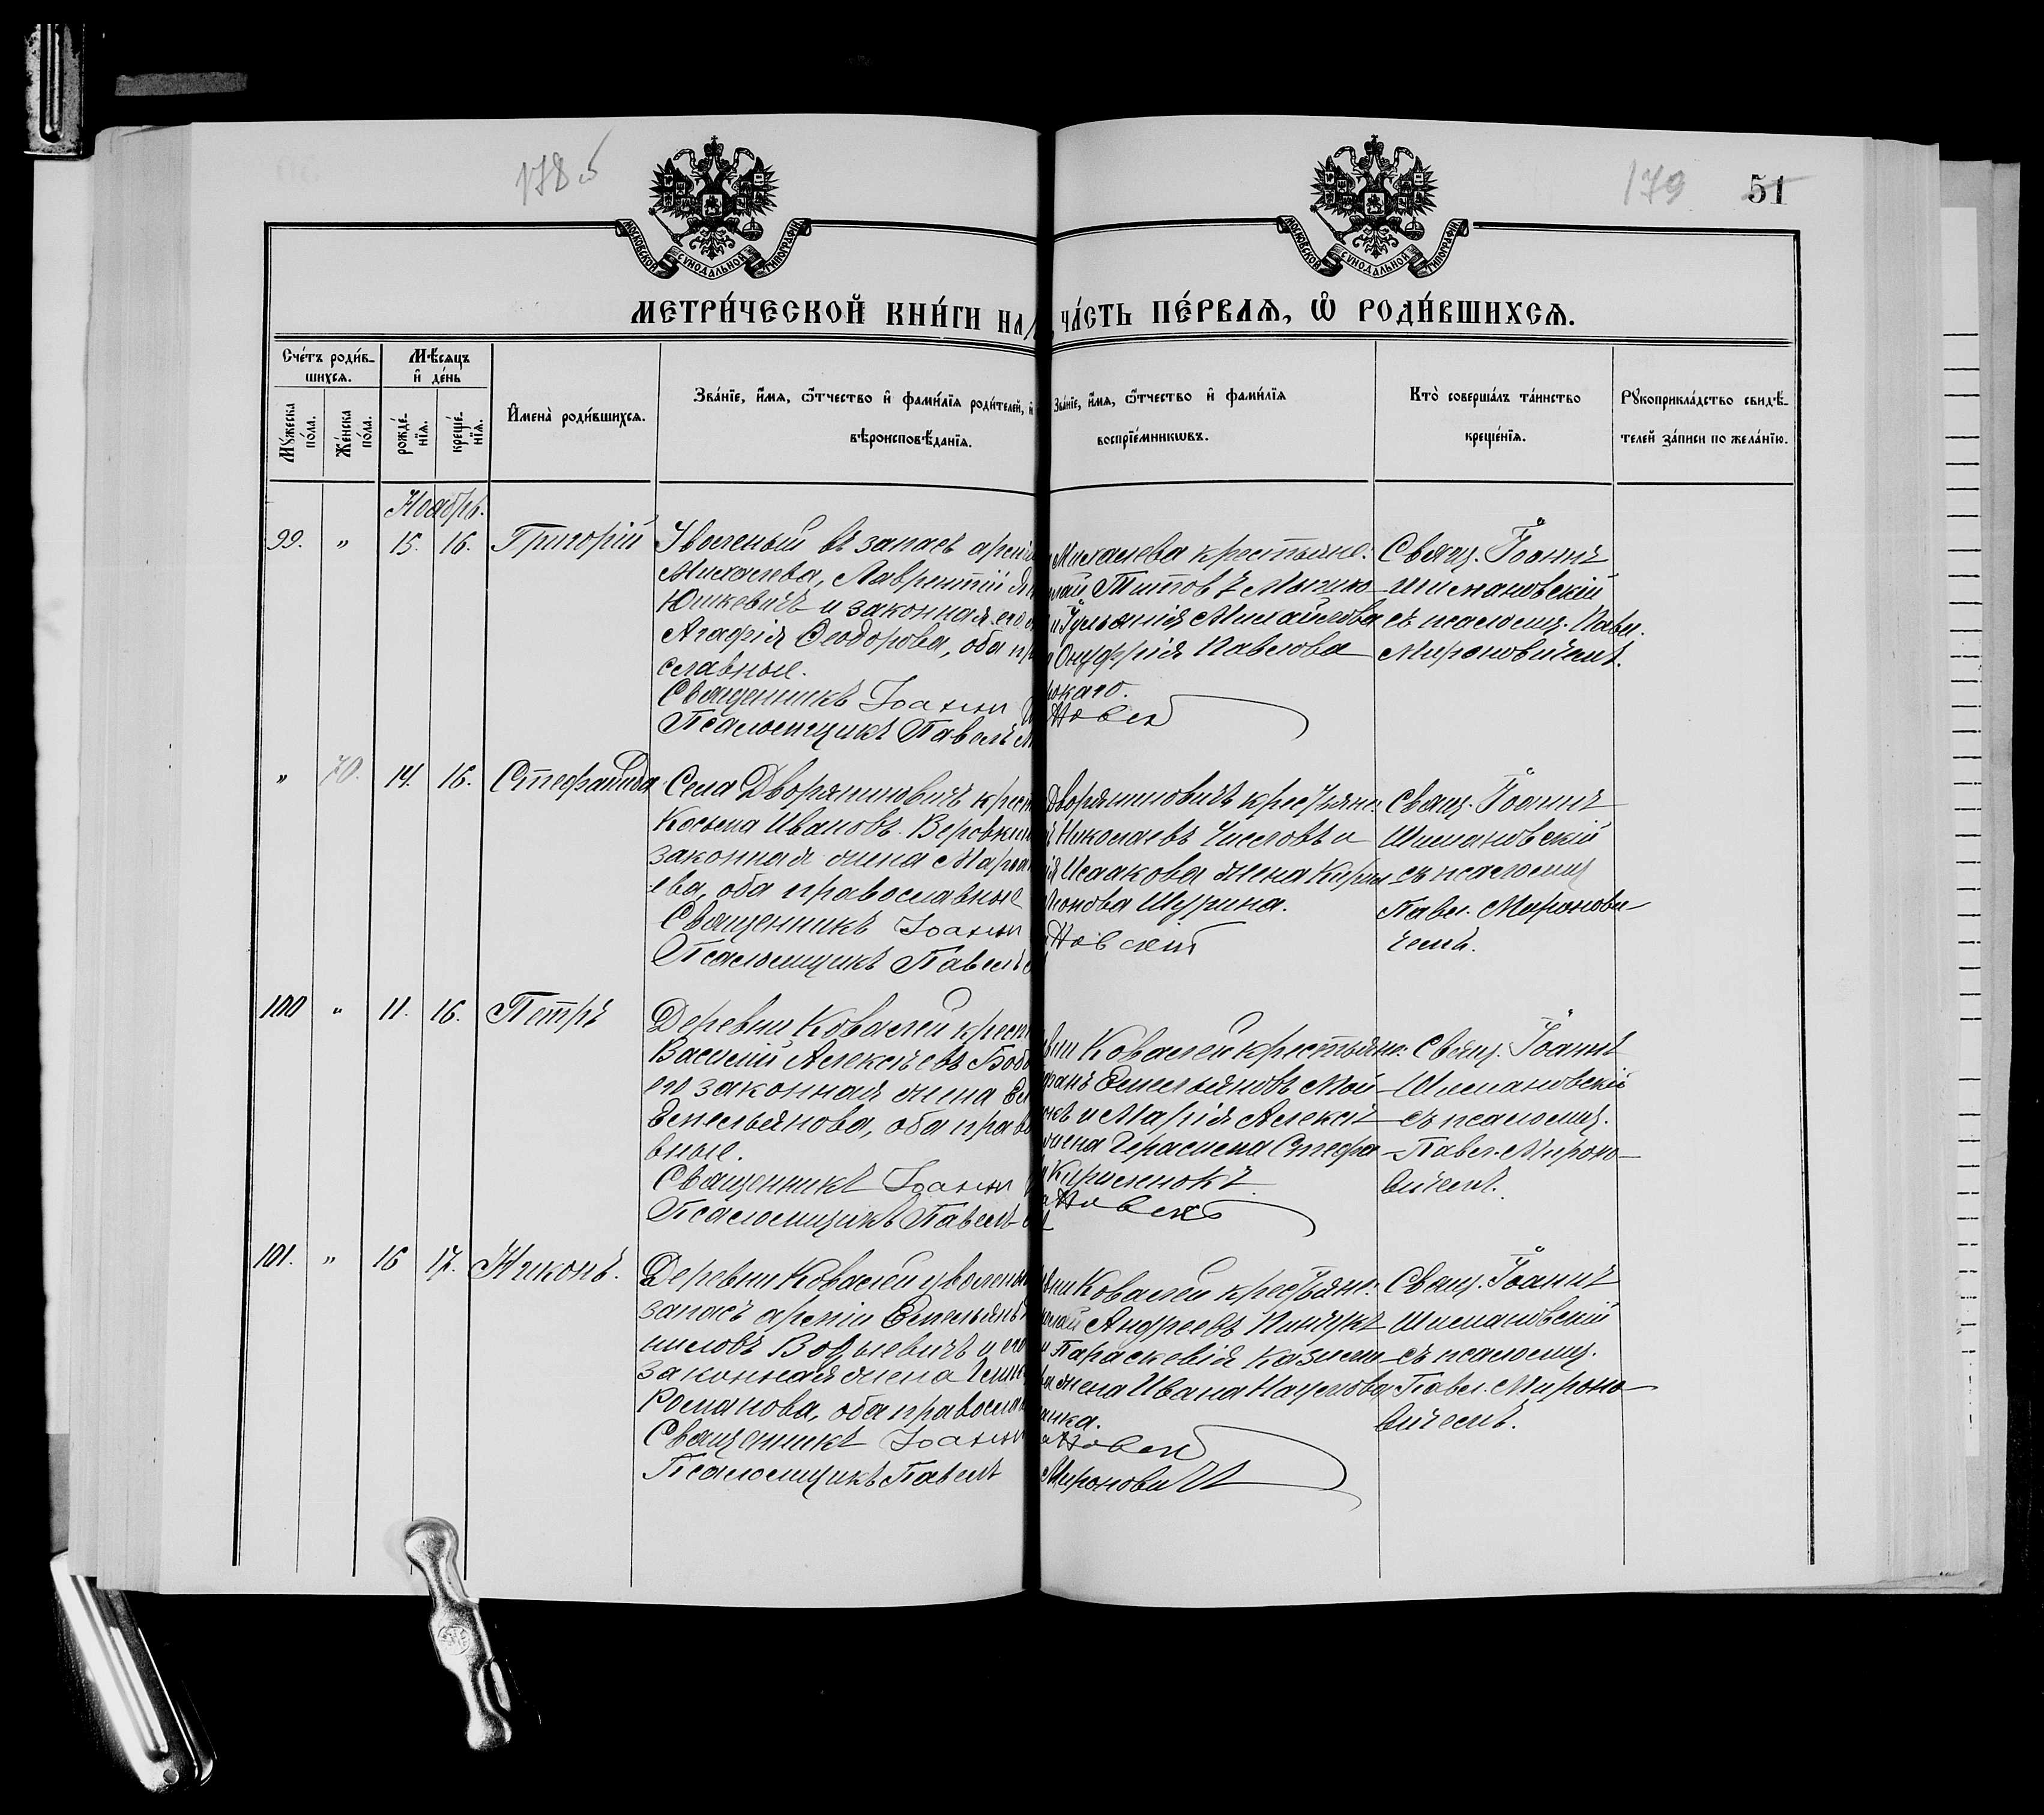 178 б
179
51
МОСКОВСКОЙ СѴНОДАЛЬНОЙ ТИПОГРАФІИ
МОСКОВСКОЙ СѴНОДАЛЬНОЙ ТИПОГРАФІИ
МЕТРИ́ЧЕСКОЙ КНИ́ГИ НА
ЧА́СТЬ ПЕ́РВАѦ, Ѡ҆ РОДИ́ВШИХСѦ.
Сче́тъ роди́в-
шихсѧ.
Мꙋ́жеска по́ла.
Же́нска по́ла.
Мѣ́сѧцъ
и҆ де́нь
рожде́-нїѧ.
креще́-нїѧ.
И҆мена̀ роди́вшихсѧ.
Зва́нїе, и҆́мѧ, ѻ҆́тчество и҆ фами́лїѧ роди́телей, и҆
вѣроисповѣ́данїѧ.
Зва́нїе, и҆́мѧ, ѻ҆́тчество и҆ фами́лїѧ
воспрїе́мникѡвъ.
Кто̀ соверша́лъ та́инство
креще́нїѧ.
Рꙋкоприкла́дство свидѣ́-
телей за́писи по жела́нїю.
Ноябрь.
99.
"
15.
16.
Григорій
Уволеный въ запасъ арміи
Михалева, Лаврентій
Юшкевичъ и законная его
Агафія Ѳеодорова, оба пр
славные.
Священникъ Іоанн
Псаломщикъ Павелъ
Михалева крестьяне:
лай Титовъ
и Іуліанія Михайлова
Онуфрія Павлова
Свящ. Іоаннъ
Шимановскій
съ псаломщ. Павл.
Мироновичемъ.
"
70.
14.
16.
Стефанида
Села Дворяниновичъ крест
Косьма Ивановъ
законная жена Марѳа
ева, оба православные
Священникъ Іоанн
Псаломщикъ Павелъ
Дворяниновичъ крестьяне:
Николаевъ Числовъ и
Исаакова жена Кирил
Шурина.
новскій
Свящ. Іоаннъ
Шимановскій
съ псаломщ
Павл. Миронови-
чемъ.
100
"
11.
16.
Петръ
Деревни Ковалей крест
Василій Алексѣевъ Боб
его законная жена
Емельянова, оба право
вные.
Священникъ Іоанн
Псаломщикъ Павелъ
вни Ковалей крестьяне:
фанъ Емельяновъ Мой-
и Марія Алексѣ-
жена Герасима Стефа-
новскій
Свящ. Іоаннъ
Шимановскій
съ псаломщ.
Павл. Мироно-
вичемъ.
101.
"
16
17.
Никонъ.
Деревни Ковалей уволены
запасъ арміи Емельянъ
ниловъ и его
законная жена
Романова, оба православ
Священникъ Іоанн
Псаломщикъ Павелъ
вни Ковалей крестьяне:
Андреевъ Пинчукъ
и Параскевія Козьми-
ва жена Ивана Наумова
новскій
Мироновичъ
Свящ. Іоаннъ
Шимановскій
съ псаломщ.
Павл. Мироно-
вичемъ.